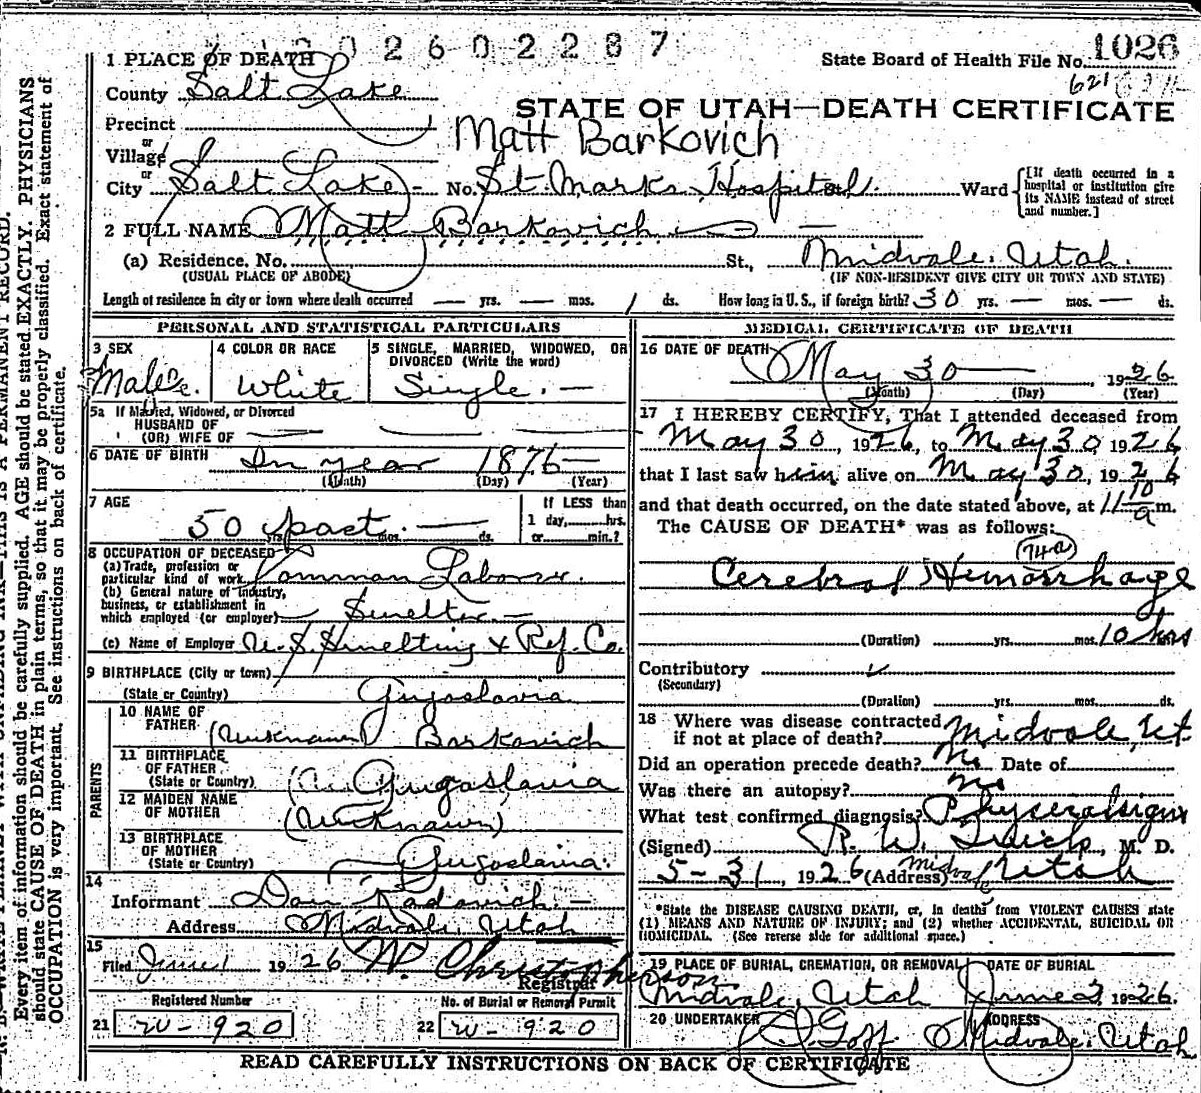 2602287
State Board of Health File No. 1026
1 PLACE OF DEATH
County Salt Lake
621
STATE OF UTAH—DEATH CERTIFICATE
Precinct
or
Village
Matt Barkovich
or
City Salt Lake No. St. Marks Hospital St. Ward
[If death occurred in a hospital or institution give its NAME instead of street and number.]
2 FULL NAME Matt Barkovich
(a) Residence. No. St., Midvale, Utah.
(USUAL PLACE OF ABODE) (IF NON-RESIDENT GIVE CITY OR TOWN AND STATE)
Length of residence in city or town where death occurred — yrs. — mos. 1 ds. How long in U. S., if foreign birth? 30 yrs. — mos. — ds.
PERSONAL AND STATISTICAL PARTICULARS
3 SEX
Male
4 COLOR OR RACE
White
5 SINGLE, MARRIED, WIDOWED, OR DIVORCED (Write the word)
Single. —
5a If Married, Widowed, or Divorced
HUSBAND OF
(OR) WIFE OF
6 DATE OF BIRTH In year 1876—
(Month) (Day) (Year)
7 AGE
50 yrs. past mos. — ds.
If LESS than
1 day,......hrs.
or......min.?
8 OCCUPATION OF DECEASED
(a) Trade, profession or particular kind of work Common Laborer.
(b) General nature of industry, business, or establishment in which employed (or employer) Smelter. —
(c) Name of Employer U. S. Smelting & Ref. Co.
9 BIRTHPLACE (City or town)
(State or Country) Jugoslavia
PARENTS
10 NAME OF FATHER (Unknown) Barkovich
11 BIRTHPLACE OF FATHER
(State or Country) Jugoslavia
12 MAIDEN NAME OF MOTHER (Unknown)
13 BIRTHPLACE OF MOTHER
(State or Country) Jugoslavia.
14
Informant Dan Radovich —
Address Midvale, Utah
15
Filed June 1 1926 W. Christopherson
Registrar
Registered Number
21 W-920
No. of Burial or Removal Permit
22 W-920
MEDICAL CERTIFICATE OF DEATH
16 DATE OF DEATH
May 30 , 1926
(Month) (Day) (Year)
17 I HEREBY CERTIFY, That I attended deceased from
May 30, 1926, to May 30 1926
that I last saw him alive on May 30, 1926
and that death occurred, on the date stated above, at 11 10 a m.
The CAUSE OF DEATH* was as follows:
74a
Cerebral Hemorrhage
(Duration) yrs. mos. 10 hrs
Contributory
(Secondary)
(Duration) yrs. mos. ds.
18 Where was disease contracted
if not at place of death? Midvale, Ut.
Did an operation precede death? No Date of
Was there an autopsy? No
What test confirmed diagnosis? Physical signs
(Signed) R. W. , M. D.
5-31, 1926 (Address) Midvale Utah
*State the DISEASE CAUSING DEATH, or, in deaths from VIOLENT CAUSES state
(1) MEANS AND NATURE OF INJURY; and (2) whether ACCIDENTAL, SUICIDAL OR
HOMICIDAL. (See reverse side for additional space.)
19 PLACE OF BURIAL, CREMATION, OR REMOVAL DATE OF BURIAL
Midvale, Utah June 2 1926.
20 UNDERTAKER ADDRESS
Goff Midvale, Utah
READ CAREFULLY INSTRUCTIONS ON BACK OF CERTIFICATE
Every item of information should be carefully supplied. AGE should be stated EXACTLY. PHYSICIANS
should state CAUSE OF DEATH in plain terms, so that it may be properly classified. Exact statement of
OCCUPATION is very important. See instructions on back of certificate.